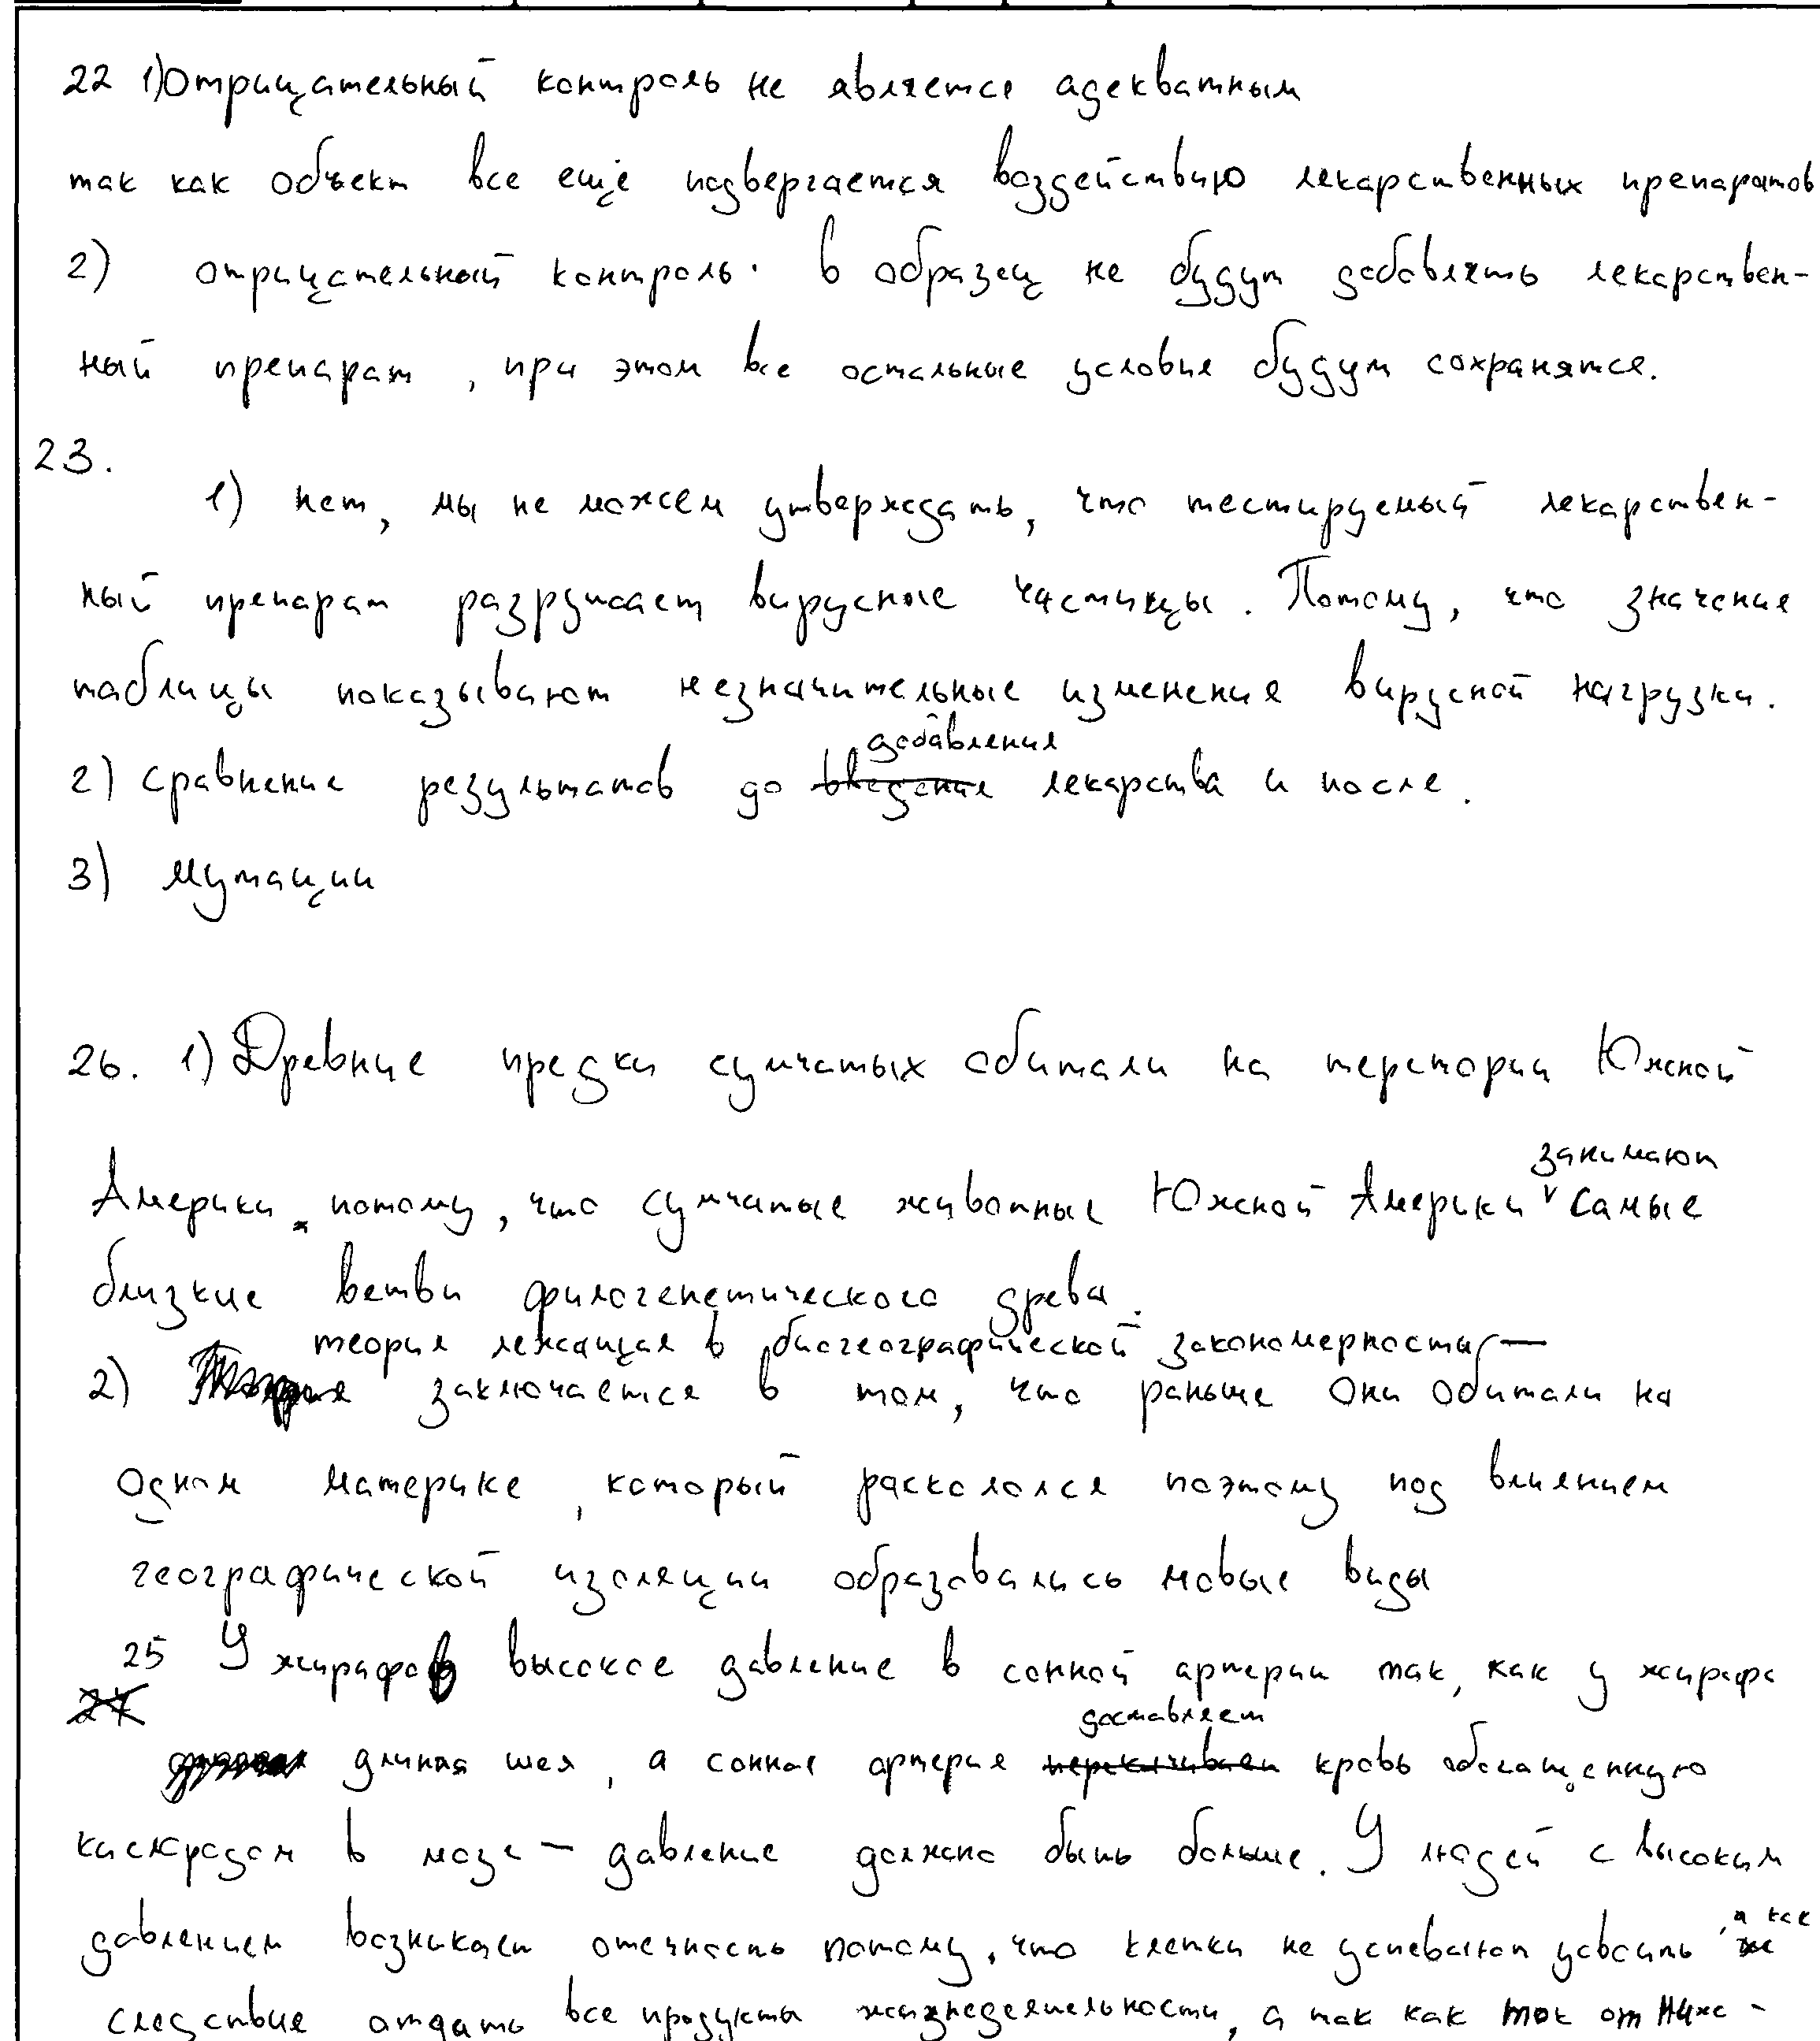 22 1) Отрицательный контроль не является адекватным
так как объект все ещё подвергается воздействию лекарственных препаратов
2) отрицательный контроль. в образец не будут добавлять лекарствен-
ный препарат, при этом все остальные условия будут сохранятся.
23.
1) нет, мы не можем утверждать, что тестируемый лекарствен-
ный препарат разрушает вирусные частицы. Потому, что значения
таблицы показывают незначительные изменения вирусной нагрузки.
добавления
2) сравнение результатов до введения лекарства и после.
3) мутации
26. 1) Древние предки сумчатых обитали на терстории Южной
занимают
Америки, потому, что сумчатые животные Южной Америки самые
близкие ветви филогенетического древа.
теория лежащая в биогеографической закономерности —
2) заключается в том, что раньше они обитали на
одном материке, который раскололся поэтому под влиянием
географической изоляции образовались новые виды
25 У жирафов высокое давление в сонной артерии так, как у жирафа
24
доставляет
длиная шея, а сонная артерия перекачивает кровь обогащенную
кислородом в мозг — давление должно быть больше. У людей с высоким
давлением возникает отечность потому, что клетки не успевают усвоить, а как
следствие отдать все продукты жизнедеятельности, а так как ток от ниж-